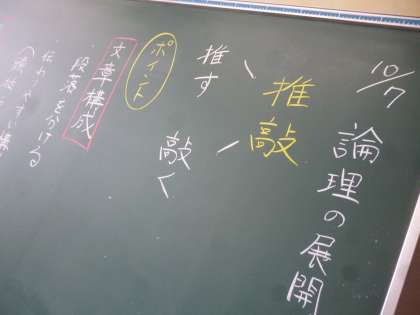 10/7
論理の展開
推敲
推す
敲く
ポイント
文章構成
段落を分ける